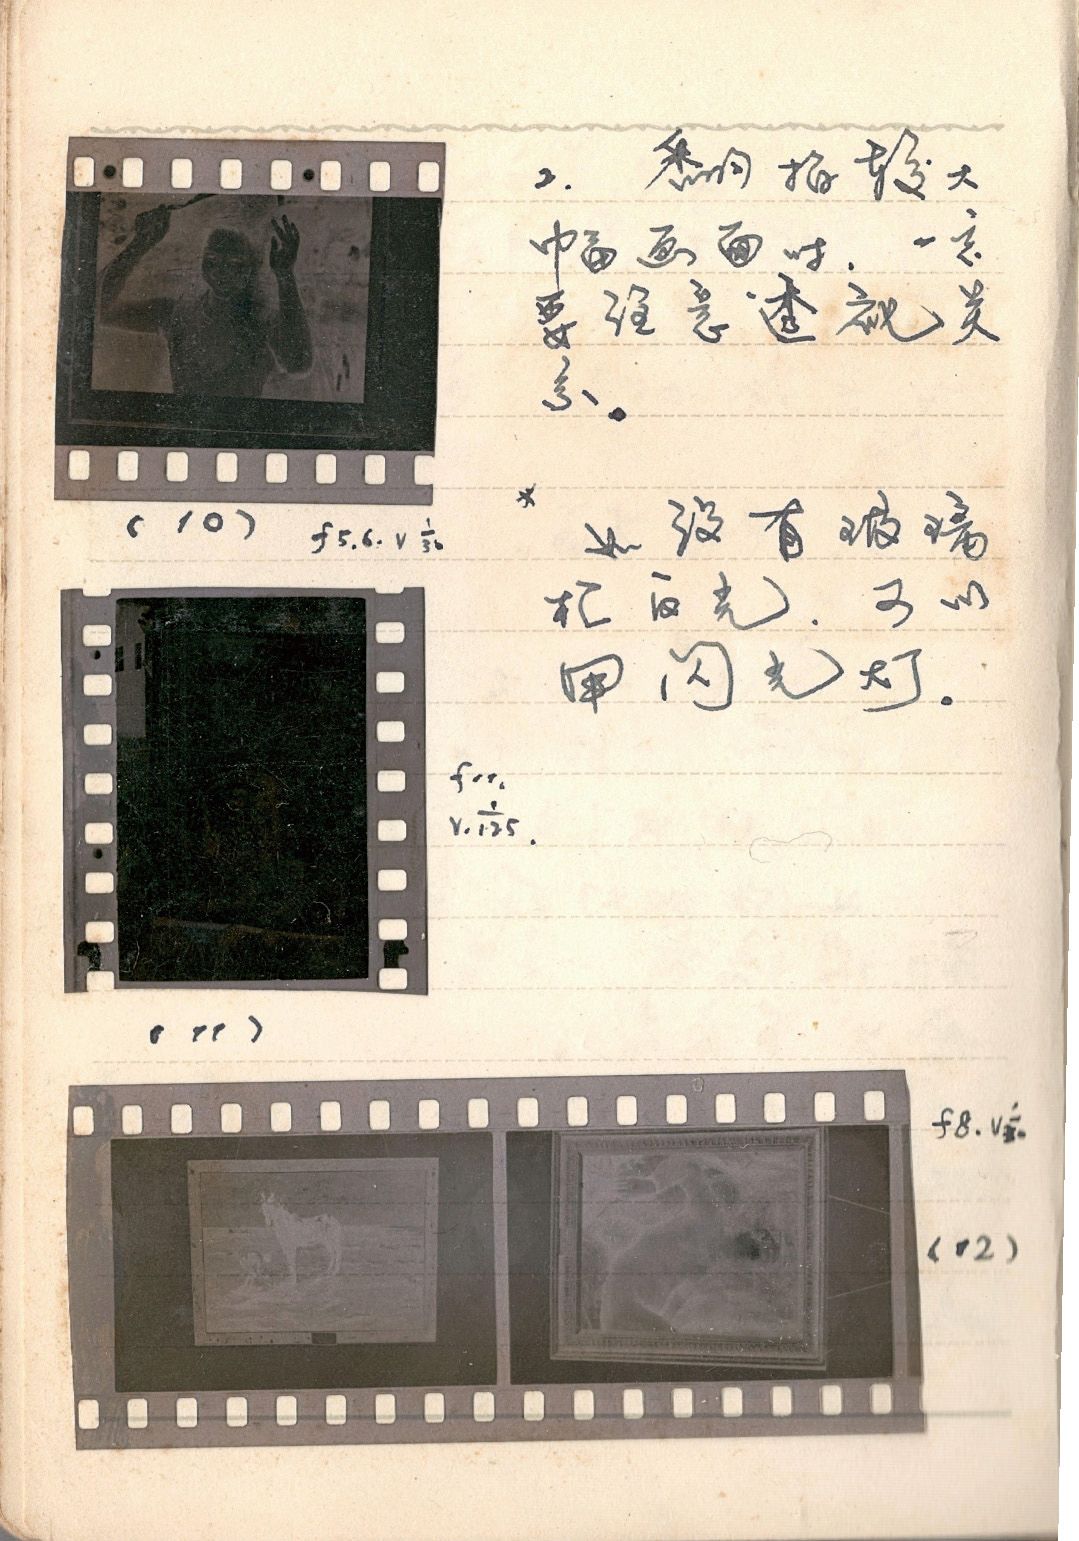 2. 拍较大
幅画面时. 一定
要注意透视关
系。
(10) f5.6. V 1/30
* 如没有玻璃
框反光. 可以
用闪光灯。
f11.
V. 1/125.
(11)
f8. V
(12)